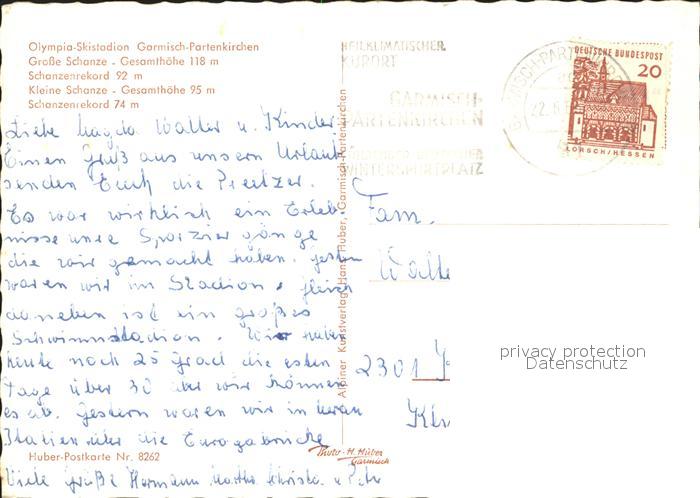 Olympia-Skistadion Garmisch-Partenkirchen
Große Schanze - Gesamthöhe 118 m
Schanzenrekord 92 m
Kleine Schanze - Gesamthöhe 95 m
Schanzenrekord 74 m
Liebe Magda Walter u. Kinder
Einen Gruß aus unserm Urlaub
senden Euch die Preitzer.
Es war wirklich ein Erleb-
nisse unre Spazier gänge
die wir gemacht haben. Gestern
waren wir im Stadion. gleich
daneben ist ein großes
Schwimmstadion. Wir haben
heute noch 25 Grad die esten
Tage über 30 aber wir können
es ab. Gestern waren wir in
Italien über die Europabrücke
Viele Grüße Hermann Martha Christa u.
Huber-Postkarte Nr. 8262
Photo-H. Huber
Garmisch
Alpiner Kunstverlag Hans Huber, Garmisch-Partenkirchen
HEILKLIMATISCHER
KURORT
GARMISCH-
PARTENKIRCHEN
WINTERSPORTPLATZ
DEUTSCHE BUNDESPOST
20
LORSCH/HESSEN
Fam.
Walte
2301
privacy protection
Datenschutz